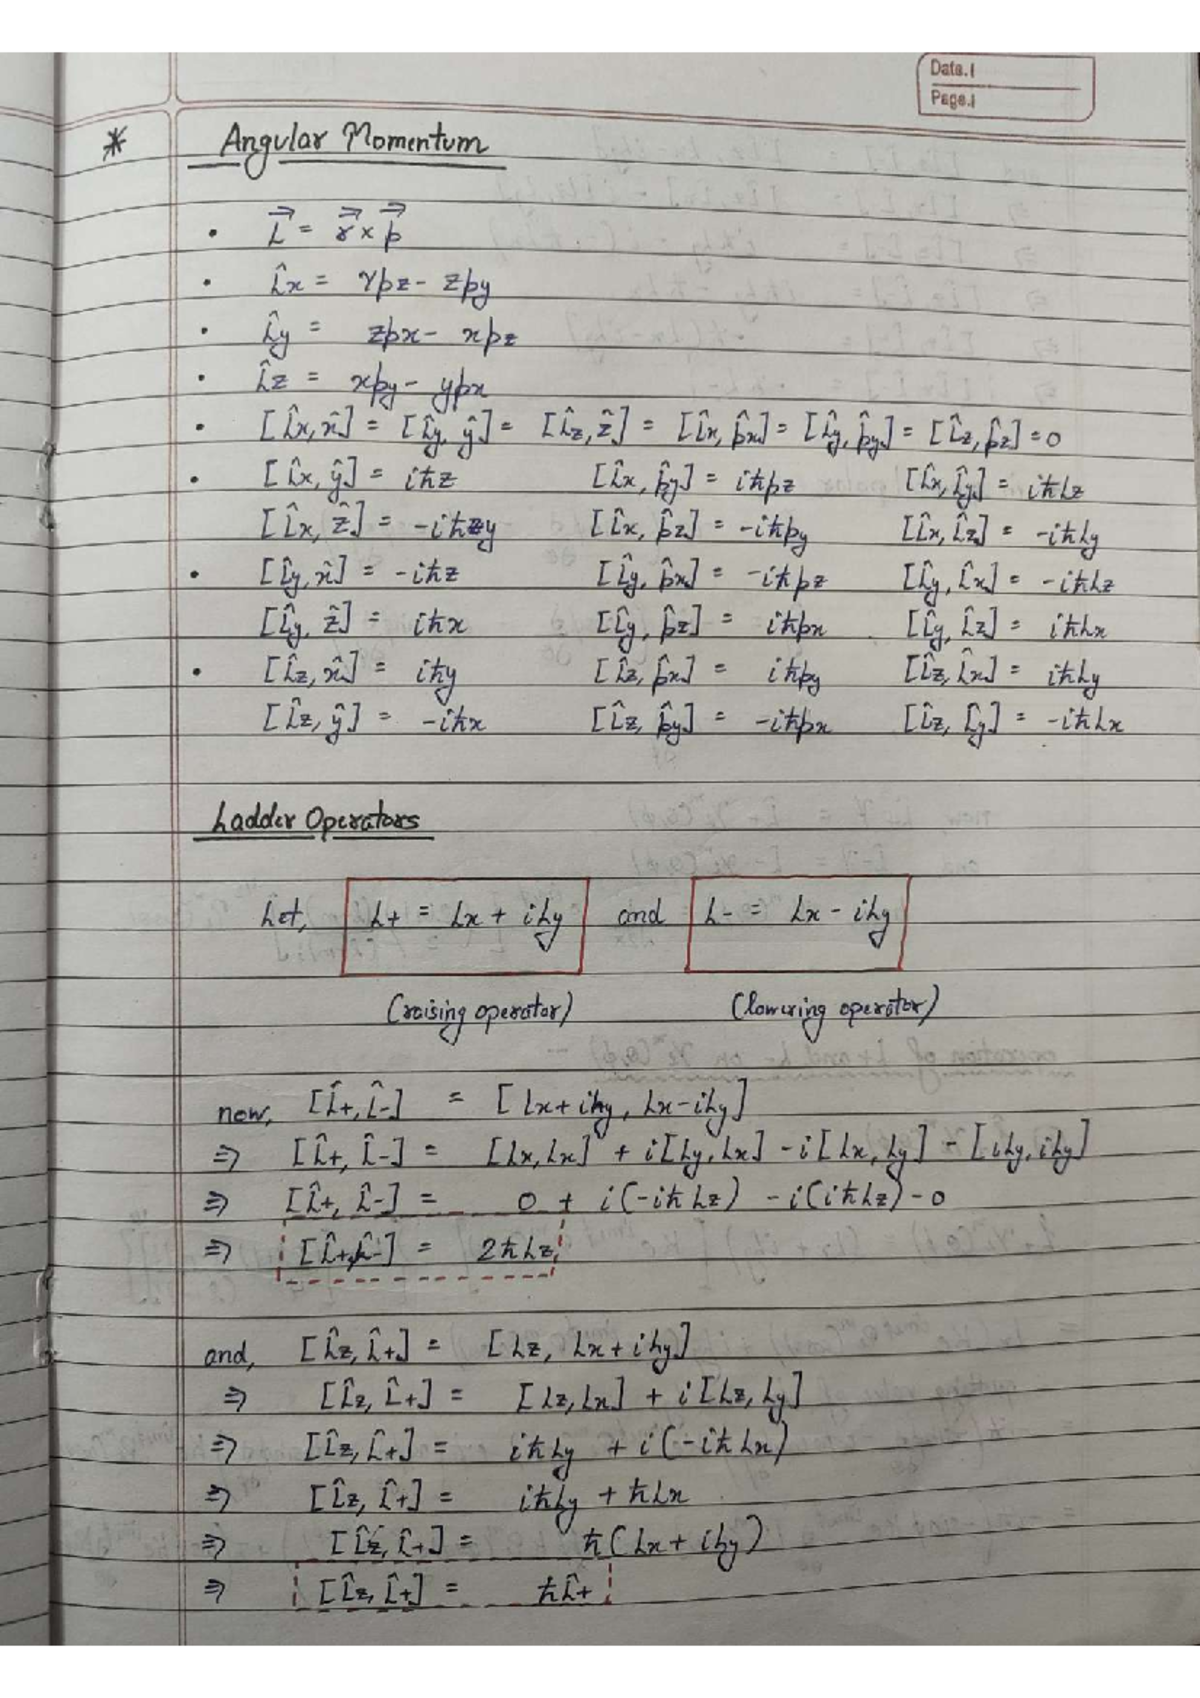 Date.
Page.
* Angular Momentum
• L⃗ = r⃗ × p⃗
• L̂x = Ypz - zpy
• L̂y = zpx - xpz
• L̂z = xpy - ypx
• [L̂x, x̂] = [L̂y, ŷ] = [L̂z, ẑ] = [L̂x, p̂x] = [L̂y, p̂y] = [L̂z, p̂z] = 0
• [L̂x, ŷ] = iħz [L̂x, p̂y] = iħpz [L̂x, L̂y] = iħLz
[L̂x, ẑ] = -iħy [L̂x, p̂z] = -iħpy [L̂x, L̂z] = -iħLy
• [L̂y, x̂] = -iħz [L̂y, p̂x] = -iħpz [L̂y, L̂x] = -iħLz
[L̂y, ẑ] = iħx [L̂y, p̂z] = iħpx [L̂y, L̂z] = iħLx
• [L̂z, x̂] = iħy [L̂z, p̂x] = iħpy [L̂z, L̂x] = iħLy
[L̂z, ŷ] = -iħx [L̂z, p̂y] = -iħpx [L̂z, L̂y] = -iħLx
Ladder Operators
Let, L+ = Lx + iLy and L- = Lx - iLy
(raising operator) (lowering operator)
now, [L̂+, L̂-] = [Lx + iLy, Lx - iLy]
⇒ [L̂+, L̂-] = [Lx, Lx] + i[Ly, Lx] - i[Lx, Ly] - [iLy, iLy]
⇒ [L̂+, L̂-] = 0 + i(-iħLz) - i(iħLz) - 0
⇒ [L̂+, L̂-] = 2ħLz
and, [L̂z, L̂+] = [Lz, Lx + iLy]
⇒ [L̂z, L̂+] = [Lz, Lx] + i[Lz, Ly]
⇒ [L̂z, L̂+] = iħLy + i(-iħLx)
⇒ [L̂z, L̂+] = iħLy + ħLx
⇒ [L̂z, L̂+] = ħ(Lx + iLy)
⇒ [L̂z, L̂+] = ħL̂+